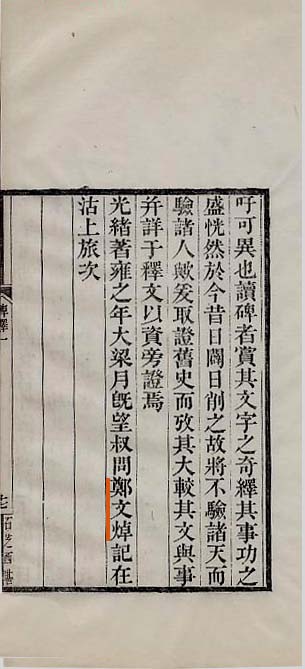 吁可異也讀碑者賞其文字之奇繹其事功之
盛恍然於今昔日闢日削之故將不驗諸天而
驗諸人歟爰取證舊史而攷其大較其文與事
并詳于釋文以資旁證焉
光緒著雍之年大梁月旣望叔問鄭文焯記在
沽上旅次
碑釋一